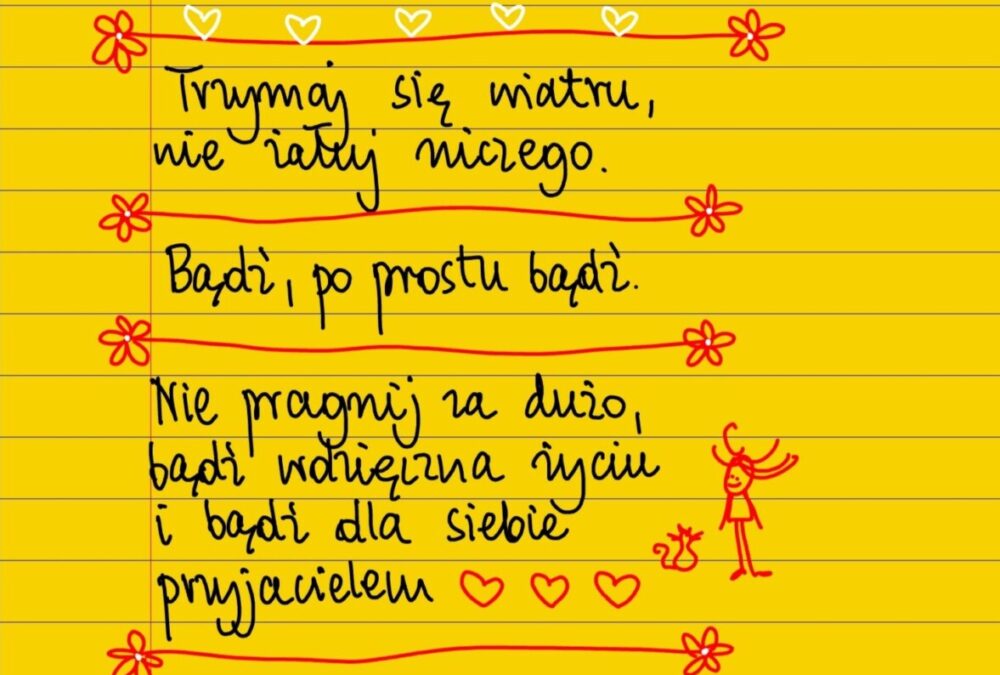 Trzymaj się wiatru,
nie żałuj niczego.
Bądź, po prostu bądź.
Nie pragnij za dużo,
bądź wdzięczna życiu
i bądź dla siebie
przyjacielem